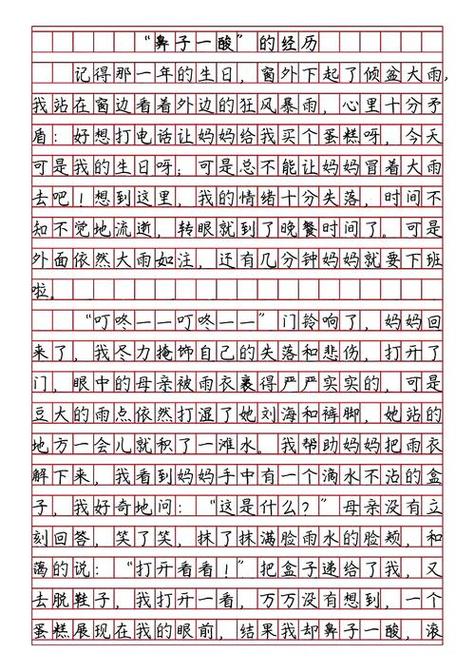 “鼻子一酸”的经历
记得那一年的生日，窗外下起了倾盆大雨，
我站在窗边看着外边的狂风暴雨，心里十分矛
盾：好想打电话让妈妈给我买个蛋糕呀，今天
可是我的生日呀；可是总不能让妈妈冒着大雨
去吧！想到这里，我的情绪十分失落，时间不
知不觉地流逝，转眼就到了晚餐时间了。可是
外面依然大雨如注，还有几分钟妈妈就要下班
啦。
“叮咚——叮咚——”门铃响了，妈妈回
来了，我尽力掩饰自己的失落和悲伤，打开了
门，眼中的母亲被雨衣裹得严严实实的，可是
豆大的雨点依然打湿了她刘海和裤脚，她站的
地方一会儿就积了一滩水。我帮助妈妈把雨衣
解下来，我看到妈妈手中有一个滴水不沾的盒
子，我好奇地问：“这是什么？”母亲没有立
刻回答，笑了笑，抹了抹满脸雨水的脸颊，和
蔼的说：“打开看看！”把盒子递给了我，又
去脱鞋子，我打开一看，万万没有想到，一个
蛋糕展现在我的眼前，结果我却鼻子一酸，滚